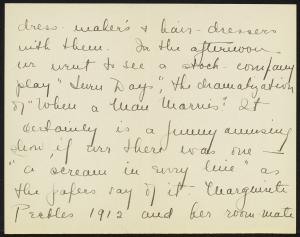 dress-maker's & hair-dressers
with them. In the afternoon
we went to see a stock-company
play "Seven Days", the dramatization
of "When a Man Marries". It
certainly is a funny amusing
show, if ever there was one —
"a scream in every line" as
the papers say of it. Marguerite
Peebles 1912 and her room-mate